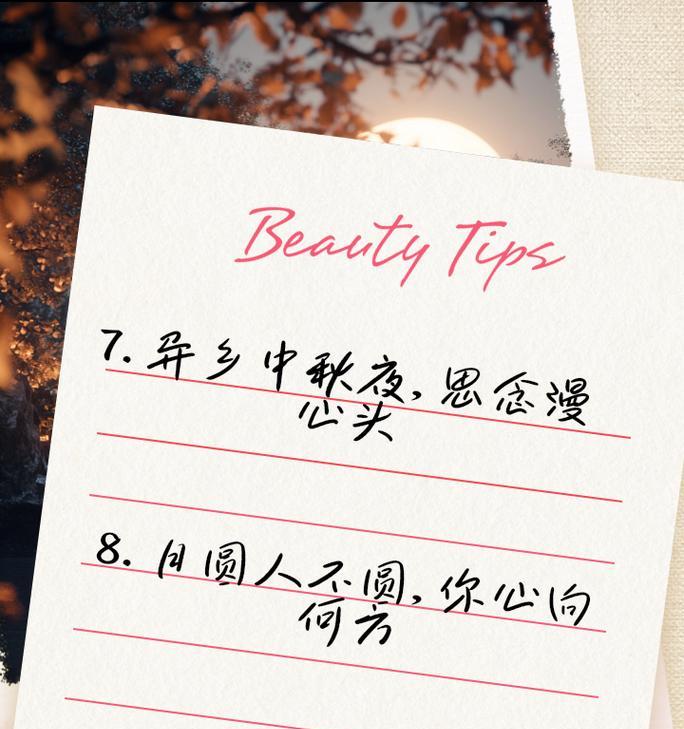 Beauty Tips
7. 异乡中秋夜, 思念漫
心头
8. 月圆人不圆, 你心向
何方